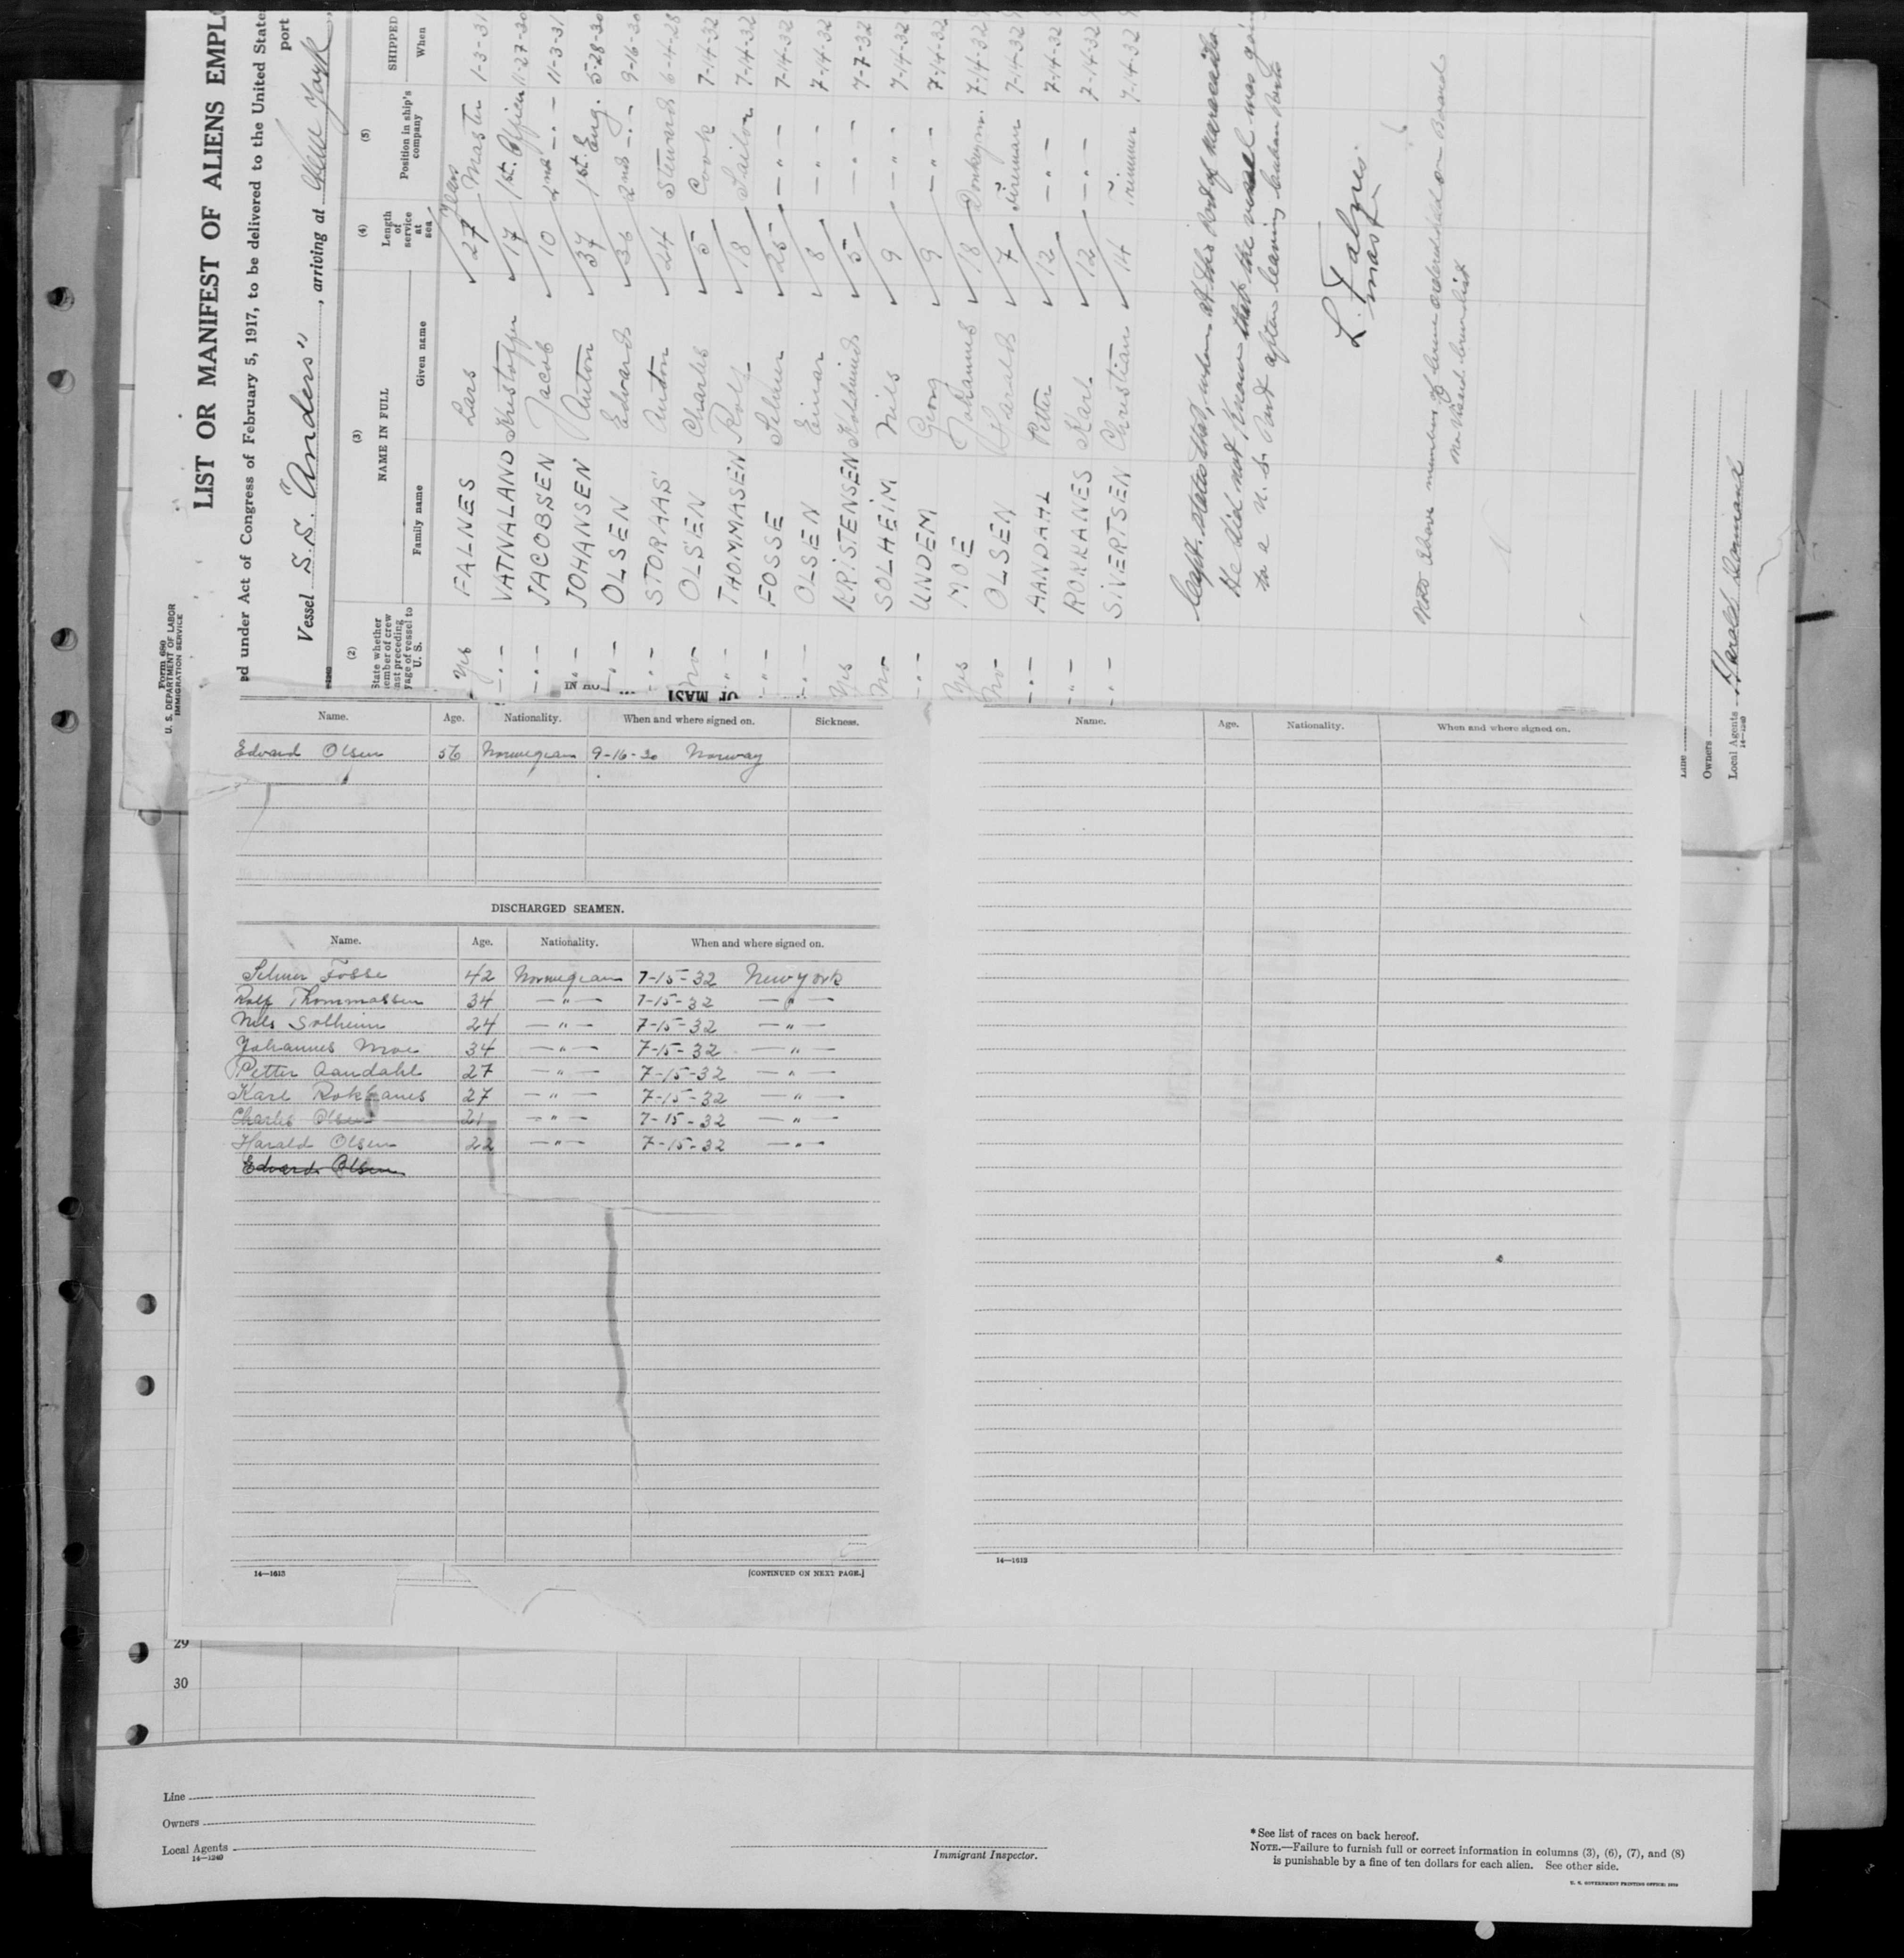 Form 680
U. S. DEPARTMENT OF LABOR
IMMIGRATION SERVICE
LIST OR MANIFEST OF ALIENS EMPL
ed under Act of Congress of February 5, 1917, to be delivered to the United State
port
Vessel S.S. "Anders", arriving at New York
(2) (3) (4) (5)
State whether member of crew last preceding voyage of vessel to U. S.
NAME IN FULL
Family name Given name
Length of service at sea
Position in ship's company
SHIPPED
When
Years
Yes FALNES Lars 27 Master 1-3-31
—"— VATNALAND Kristoffer 17 1st. Officer 11-27-30
—"— JACOBSEN Jacob 10 2nd —"— 11-3-31
"— JOHANSEN Anton 37 1st. Eng. 5-28-30
—"— OLSEN Edvard 36 2nd —"— 9-16-30
—"— STORAAS Anton 24 Steward 6-4-28
No OLSEN Charles 5 Cook 7-14-32
"— THOMMASEN Rolf 18 Sailor 7-14-32
—"— FOSSE Selmer 25 —"— 7-14-32
—"— OLSEN Einar 8 —"— 7-14-32
Yes KRISTENSEN 5 —"— 7-7-32
No SOLHEIM Nils 9 —"— 7-14-32
—"— UNDEM Georg 9 —"— 7-14-32
Yes MOE Johannes 18 Donkeym. 7-14-32
No OLSEN Harald 7 Fireman 7-14-32
—"— AANDAHL Petter 12 —"— 7-14-32
—"— ROKKANES Karl 12 —"— 7-14-32
—"— SIVERTSEN Christian 14 Trimmer 7-14-32
Capt. states that, when at the Port of
He did not know that the vessel was goin
to a U. S. Port after leaving Cuban Ports
L. Falnes
master
Note above members of crew ordered held on Board
No Visaed crew list
Line
Owners
Local Agents Harald
14—1240
OF MAST
Name. Age. Nationality. When and where signed on. Sickness.
Edvard Olsen 56 Norwegian 9-16-30 Norway
DISCHARGED SEAMEN.
Name. Age. Nationality. When and where signed on.
Selmer Fosse 42 Norwegian 7-15-32 New York
Rolf Thommassen 34 —"— 7-15-32 —"—
Nils Solheim 24 —"— 7-15-32 —"—
Johannes Moe 34 —"— 7-15-32 —"—
Petter Aandahl 27 —"— 7-15-32 —"—
Karl Rokkanes 27 —"— 7-15-32 —"—
Charles Olsen 21 —"— 7-15-32 —"—
Harald Olsen 22 —"— 7-15-32 —"—
Edvard Olsen
14—1613 [CONTINUED ON NEXT PAGE.]
Name. Age. Nationality. When and where signed on.
14—1613
29
30
Line
Owners
Local Agents
14—1240
Immigrant Inspector.
*See list of races on back hereof.
NOTE.—Failure to furnish full or correct information in columns (3), (6), (7), and (8)
is punishable by a fine of ten dollars for each alien. See other side.
U. S. GOVERNMENT PRINTING OFFICE: 1930